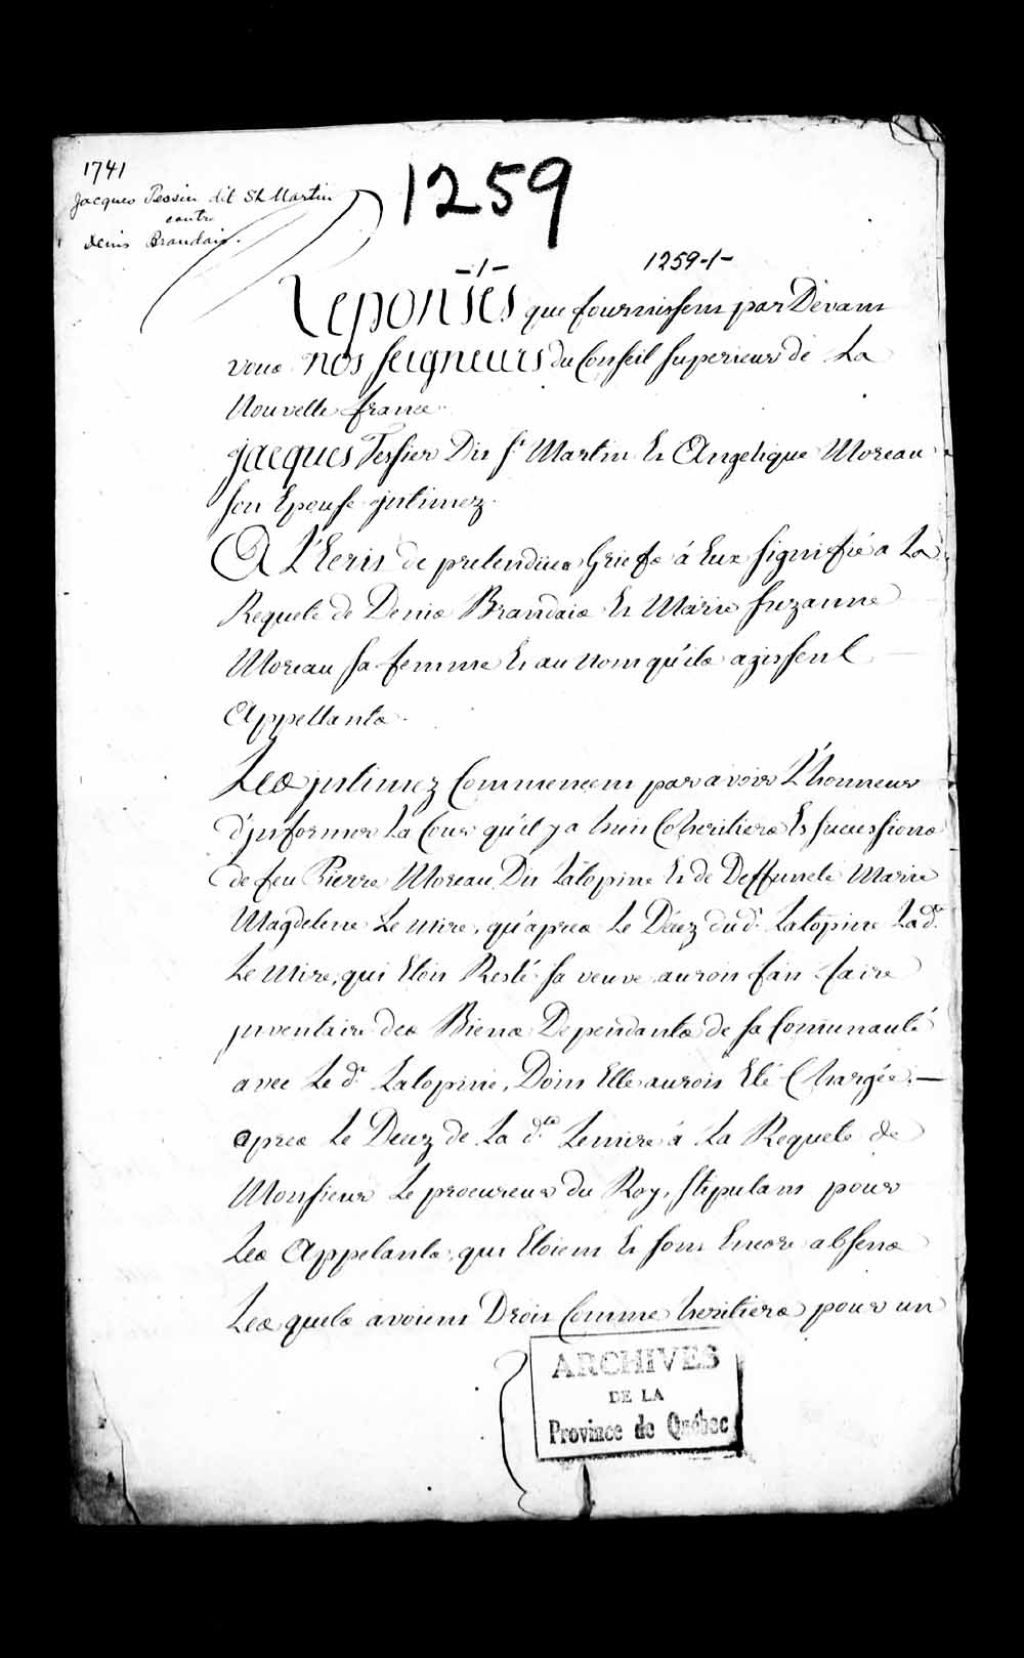 1741
Jacques Tessier dit St Martin
contre
Denis Brandais.
1259
-1-
1259-1-
Reponses que fournissent par Devant
vous nos seigneurs du Conseil superieur de La
Nouvelle france
jacques Tessier Dit St Martin Et Angelique Moreau
son Epouse jntimez.
A L'Ecrit de pretendües Griefs á Eux signifié a La
Requete de Denis Brandais Et Marie Suzanne
Moreau sa femme Et au nom qu'ils agissent
Appellants.
Les jntimez Commencent par avoir L'honneur
d'jnformer La Cour qu'il y a huit Coheritiers Es successions
de feu Pierre Moreau Dit Latopine Et de Deffuncte Marie
Magdelene Le mire, qu'apres Le Décez dud. Latopine Lade.
Le Mire, qui Etoit Resté sa veuve auroit fait faire
jnventaire des Biens Dependants de sa Communauté
avec Le dt. Latopine, Dont Elle auroit Eté Chargée, —
apres Le Decez de La dte. Lemire á La Requete de
Monsieur Le procureur du Roy, stipulant pour
Les Appelants, qui Etoient Et sont Encore absens
Les quels avoient Droit Comme heritiers pour un
ARCHIVES
DE LA
Province de Québec